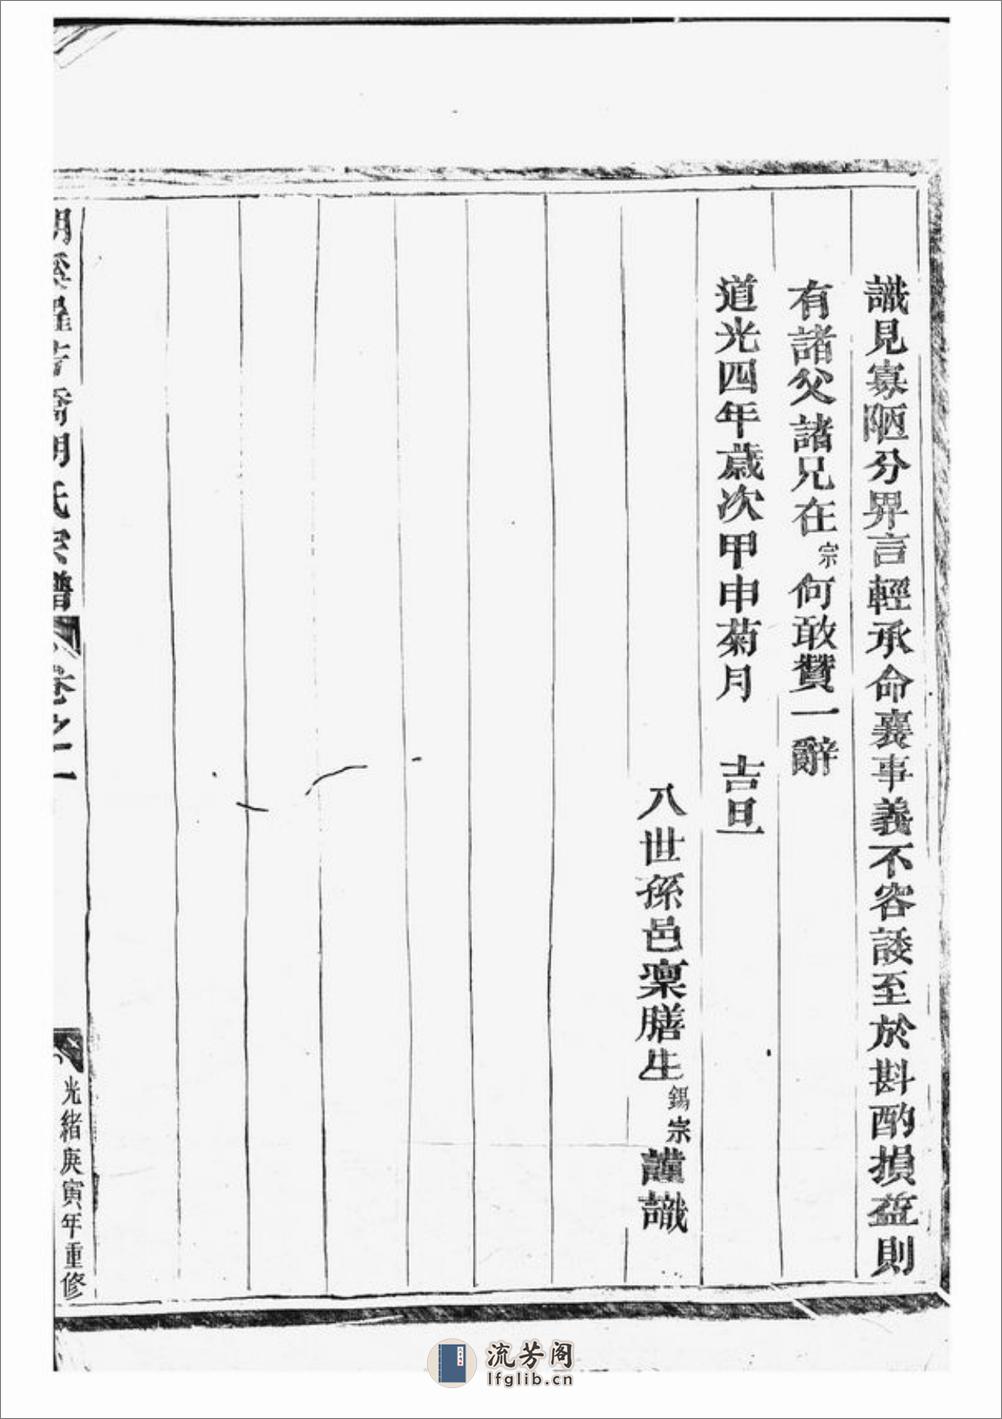 識見寡陋分畀言輕承命襄事義不容諉至於斟酌損益則
有諸父諸兄在宗何敢贊一辭
道光四年歲次甲申菊月 吉旦
八世孫邑稟膳生錫宗謹識
橋胡氏宗譜
卷之一
光緒庚寅年重修
流芳阁
lfglib.cn